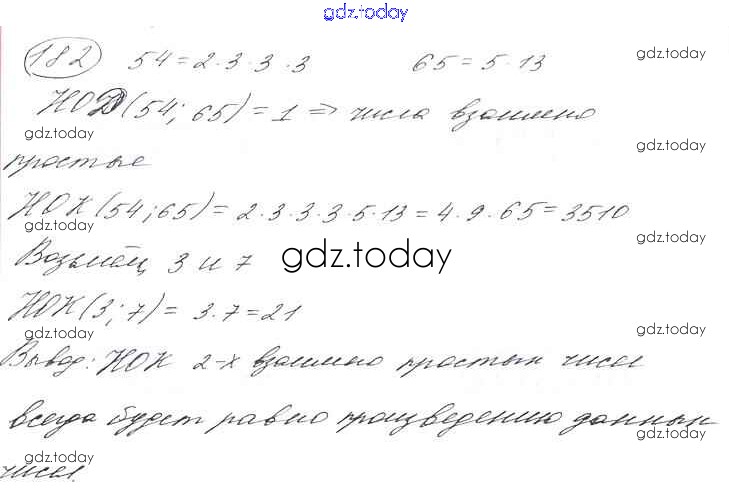 gdz.today
182 54=2·3·3·3 65=5·13
gdz.today
НОД(54; 65)=1 => числа взаимно
gdz.today
gdz.today
простые
НОК(54;65)=2·3·3·3·5·13=4·9·65=3510
gdz.today
gdz.today
Возьмём 3 и 7
gdz.today
НОК(3;7)= 3·7=21
gdz.today
gdz.today
Вывод: НОК 2-х взаимно простых чисел
всегда будет равно произведению данных
gdz.today
gdz.today
чисел.